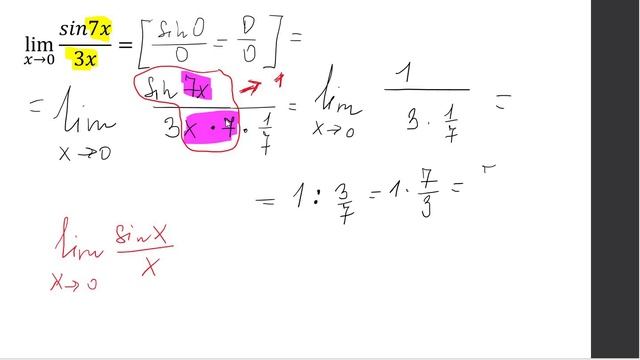 lim x→0 sin7x/3x = [sin0/0 = 0/0] =
= lim x→0 sin 7x/(3x·7·1/7) → 1 = lim x→0 1/(3·1/7) =
= 1 : 3/7 = 1 · 7/3 =
lim x→0 sinx/x